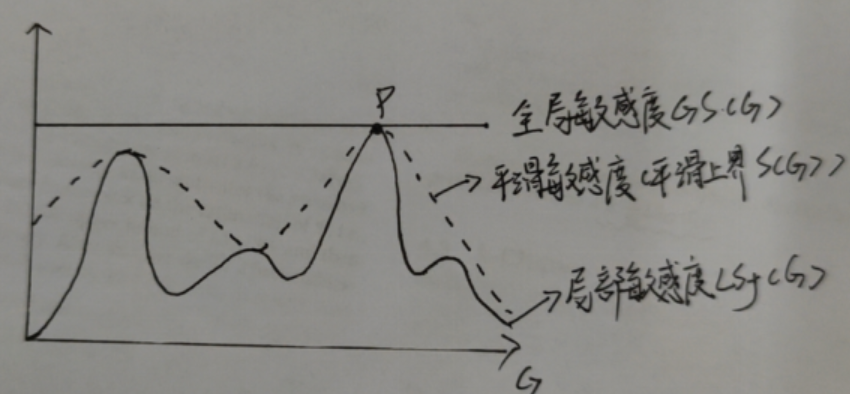 P
全局敏感度GS(G)
平滑敏感度(平滑上界S(G))
局部敏感度LSf(G)
G